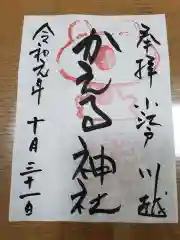 奉拝 小江戸 川越
かえる神社
令和元年 十月三十一日